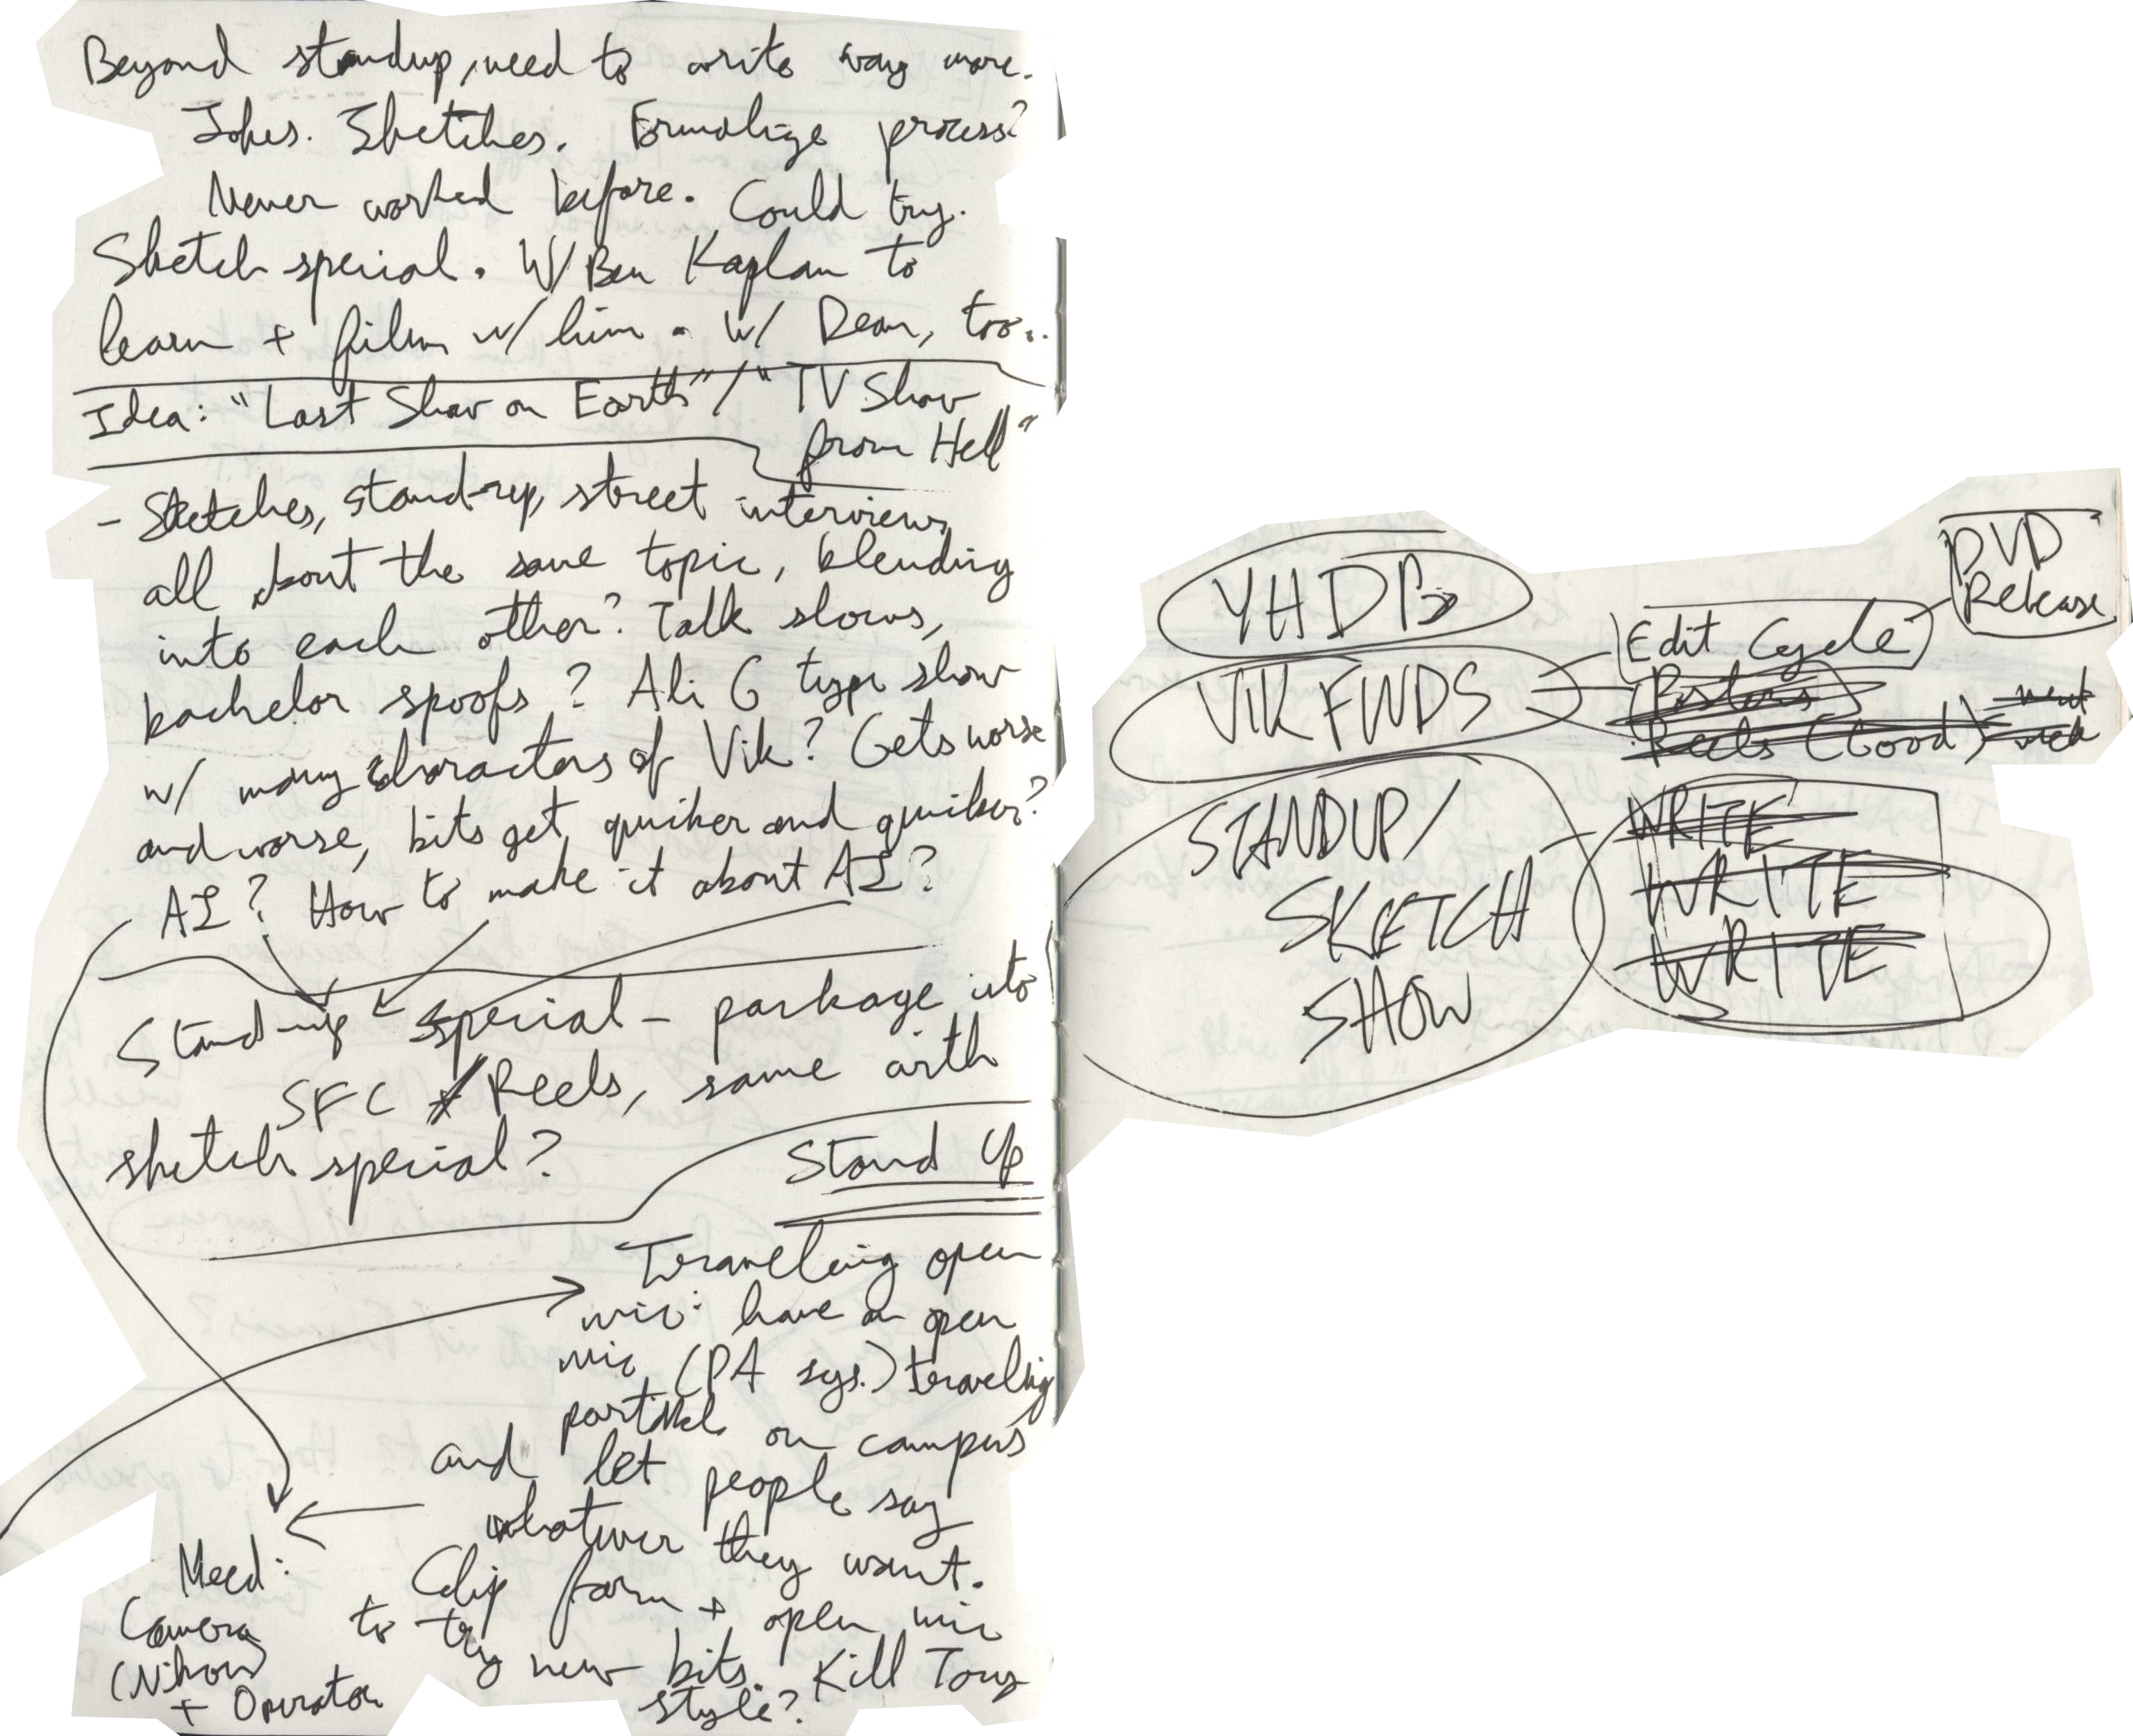 Beyond standup, need to write way more.
Jokes. Sketches. Formalize process?
Never worked before. Could try.
Sketch special. W/ Ben Kaplan to
learn + film w/ him. w/ Dean, too..
Idea: "Last Show on Earth" / "TV Show
from Hell"
- Sketches, stand-up, street interviews
all about the same topic, blending
into each other? Talk shows,
bachelor spoofs? Ali G type show
w/ many characters of Vik? Gets worse
and worse, bits get quicker and quicker?
AI? How to make it about AI?
Stand-up special - package into
SFC / Reels, same with
sketch special?
Stand Up
Traveling open
mic: have an open
mic (PA sys.) traveling
on campus
and let people say
whatever they want.
Clip farm + open mic
to try new bits. Kill Tony
style?
Need:
Camera
(Nikon)
+ Operator
YHDB
VIK FWDS
STANDUP/
SKETCH
SHOW
DVD
Release
Edit Cycle
Posters
Reels (Good)
WRITE
WRITE
WRITE